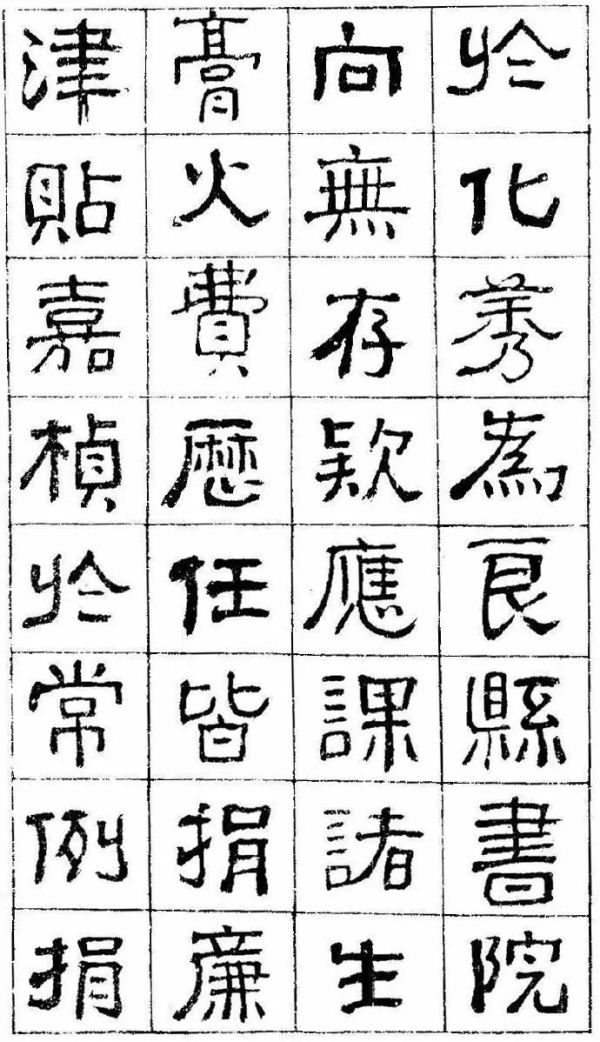 於化莠為良縣書院
向無存款應課諸生
膏火費歷任皆捐廉
津貼嘉楨於常例捐